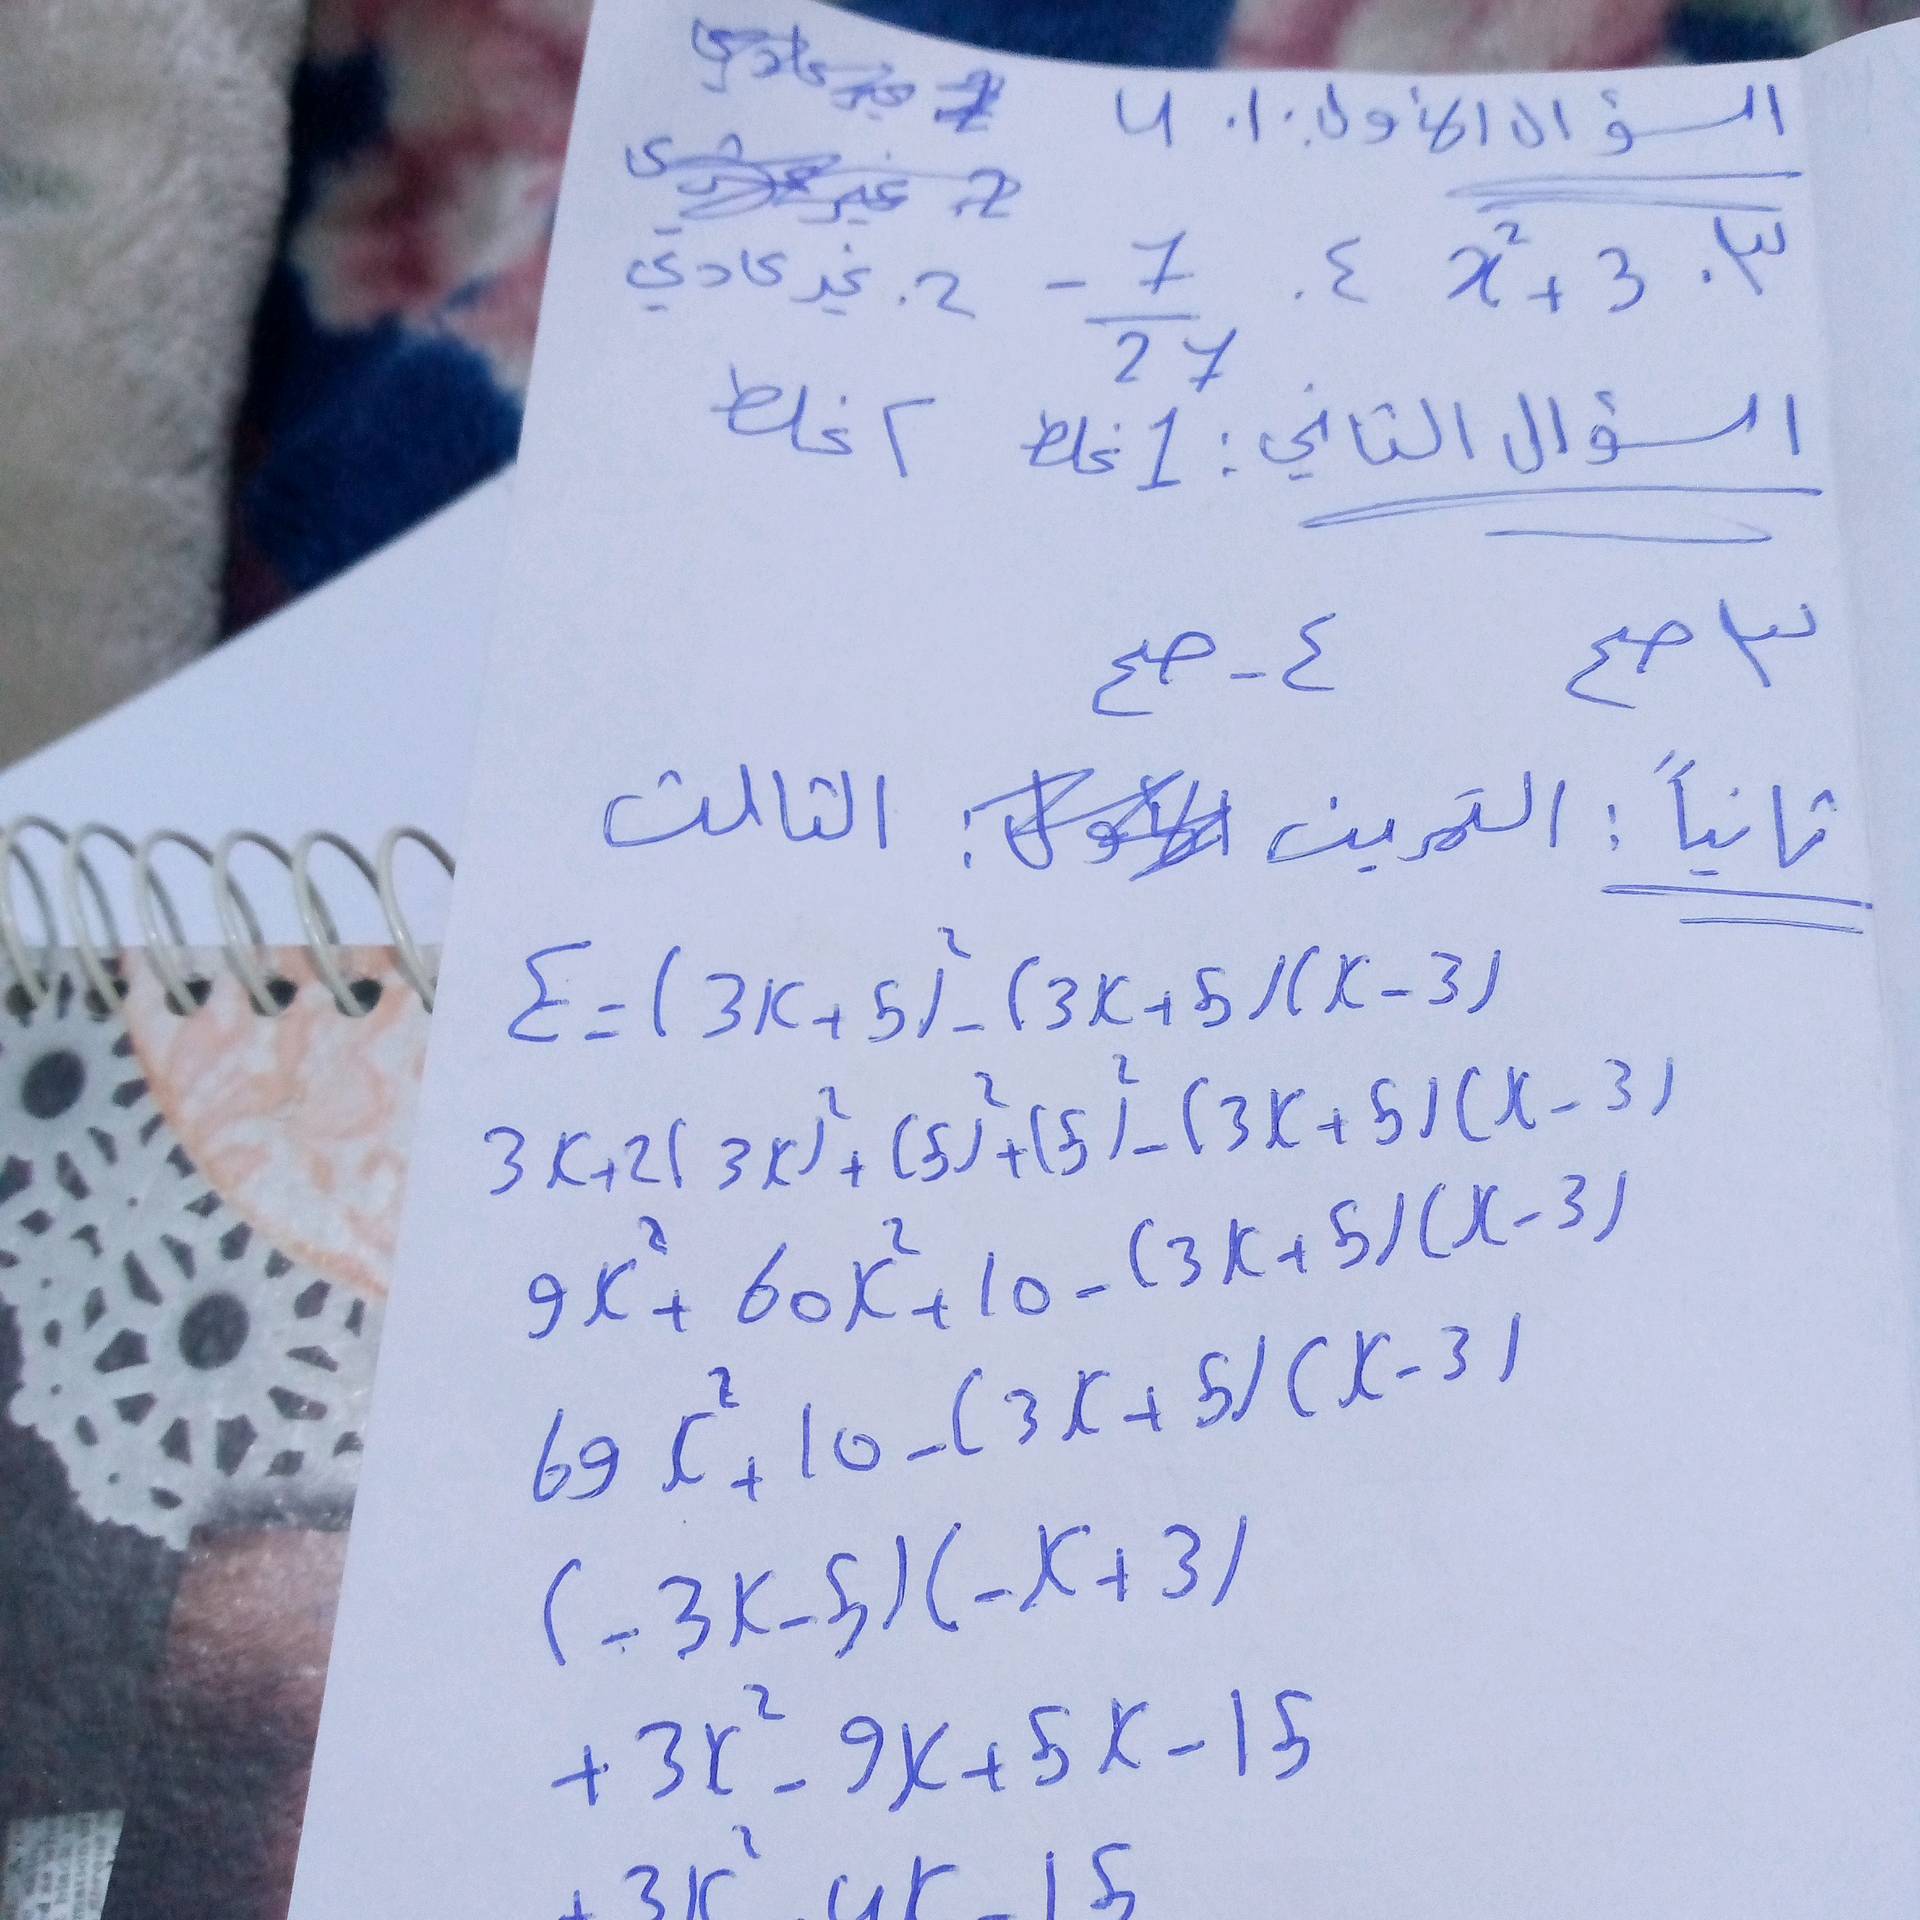 السؤال الأول: ١. 4
٣. x² + 3 ٤. -7/27 2. غير عادي
السؤال الثاني: 1 غلط ٢ غلط
٣ صح ٤ - صح
ثانياً: التمرين : الثالث
E = (3x + 5)² - (3x + 5)(x - 3)
3x + 2(3x)² + (5)² + (5)² - (3x + 5)(x - 3)
9x² + 60x² + 10 - (3x + 5)(x - 3)
69x² + 10 - (3x + 5)(x - 3)
(-3x - 5)(-x + 3)
+ 3x² - 9x + 5x - 15
+ 3x² - 4x - 15